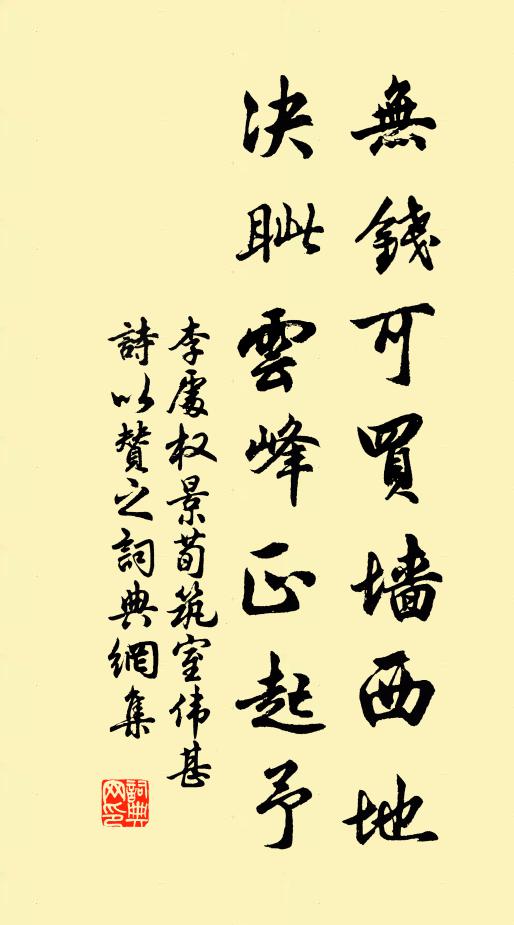 無錢可買墙西地
决眦雲峰正起予
李處权景荀筑室伟甚
詩以賛之詞典網集
詞典
网印